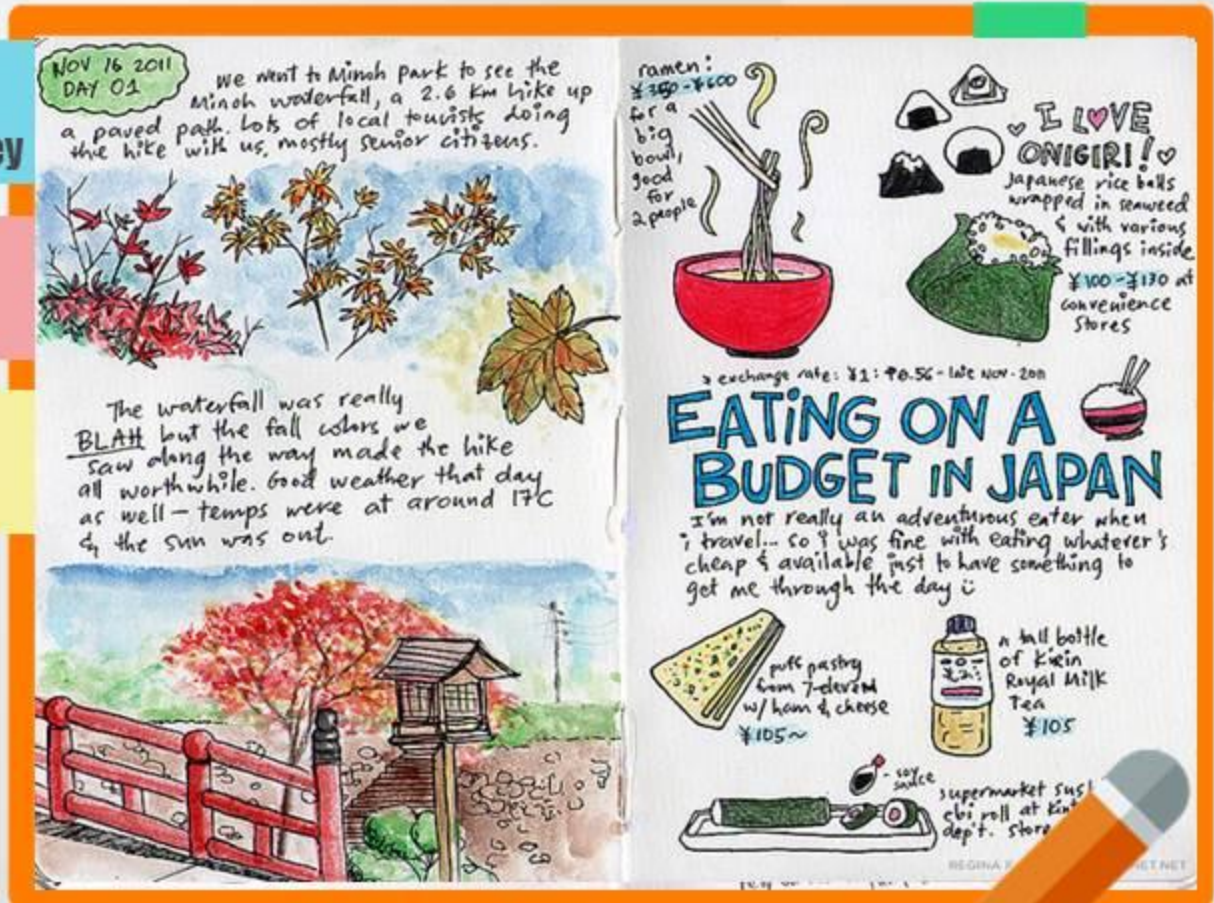 NOV 16 2011
DAY 01
We went to Minoh park to see the
Minoh waterfall, a 2.6 km hike up
a paved path. Lots of local tourists doing
the hike with us, mostly senior citizens.
The waterfall was really
BLAH but the fall colors we
saw along the way made the hike
all worthwhile. Good weather that day
as well - temps were at around 17C
& the sun was out.
ramen:
¥350-¥600
for a
big
bowl,
good
for
2 people
I LOVE
ONIGIRI!
Japanese rice balls
wrapped in seaweed
& with various
fillings inside
¥100-¥130 at
convenience
stores
exchange rate: ¥1: ₱0.56 - late Nov. 2011
EATING ON A
BUDGET IN JAPAN
I'm not really an adventurous eater when
i travel... so i was fine with eating whatever's
cheap & available just to have something to
get me through the day
puff pastry
from 7-eleven
w/ ham & cheese
¥105~
a tall bottle
of Kirin
Royal Milk
Tea
¥105
- soy
sauce
supermarket
ebi roll at
dep't. store
REGINA